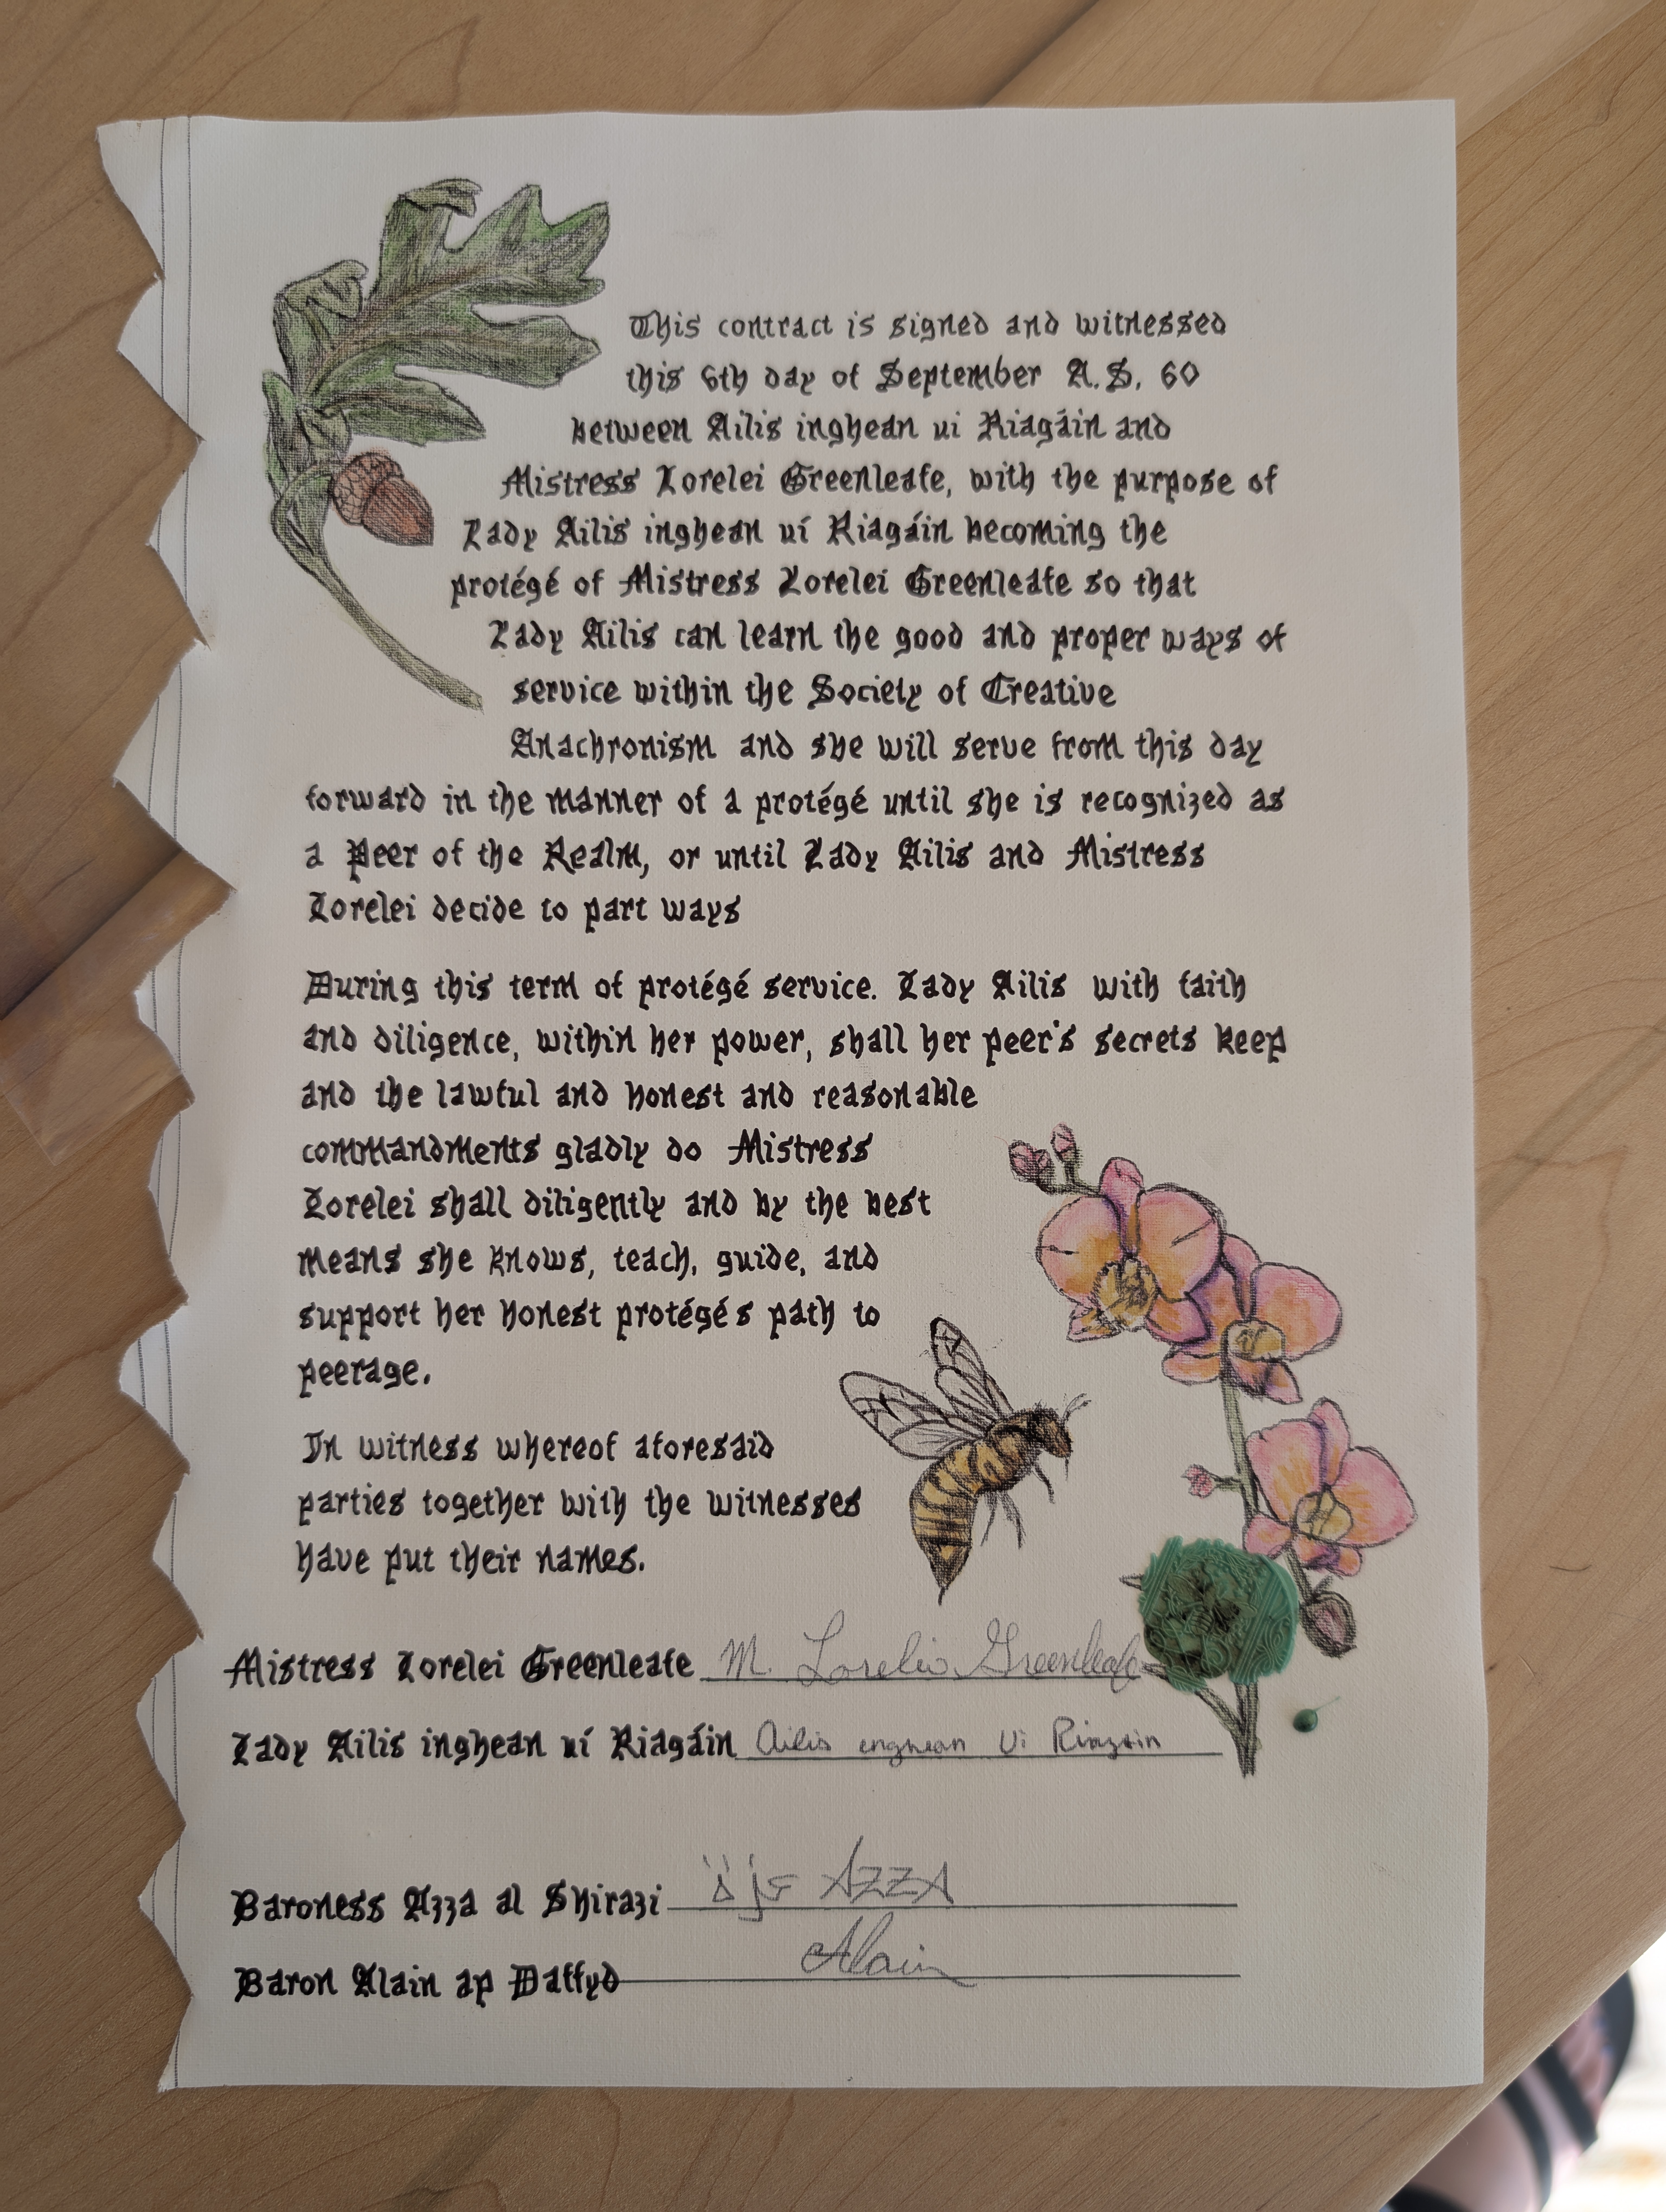 This contract is signed and witnessed
this 6th day of September A.S. 60
between Ailis inghean ui Riagáin and
Mistress Lorelei Greenleafe, with the purpose of
Lady Ailis inghean uí Riagáin becoming the
protégé of Mistress Lorelei Greenleafe so that
Lady Ailis can learn the good and proper ways of
service within the Society of Creative
Anachronism and she will serve from this day
forward in the manner of a protégé until she is recognized as
a Peer of the Realm, or until Lady Ailis and Mistress
Lorelei decide to part ways
During this term of protégé service. Lady Ailis with faith
and diligence, within her power, shall her peer's secrets keep
and the lawful and honest and reasonable
commandments gladly do Mistress
Lorelei shall diligently and by the best
means she knows, teach, guide, and
support her honest protégés path to
peerage.
In witness whereof aforesaid
parties together with the witnesses
have put their names.
Mistress Lorelei Greenleafe M. Lorelei Greenleafe
Lady Ailis inghean uí Riagáin Ailis enghean Ui Riagain
Baroness Azza al Shirazi AZZA
Baron Alain ap Daffyd Alain